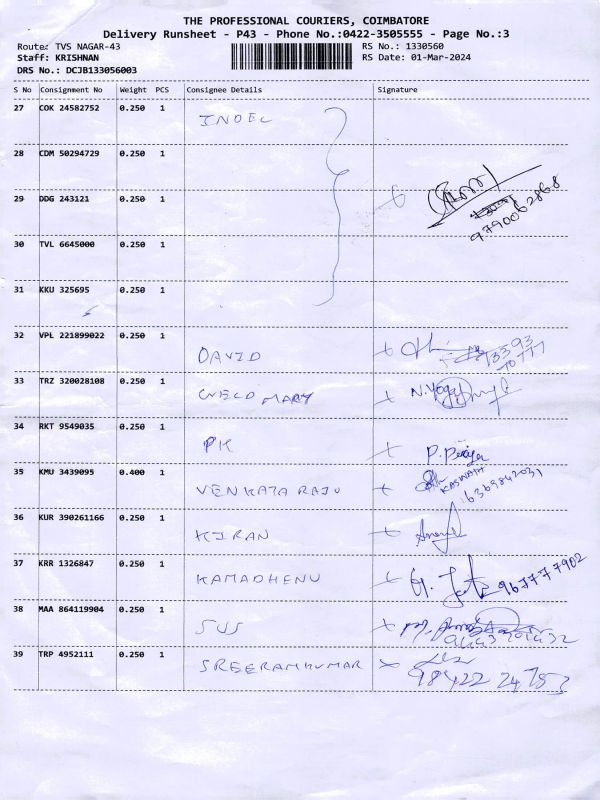 THE PROFESSIONAL COURIERS, COIMBATORE
Delivery Runsheet - P43 - Phone No.:0422-3505555 - Page No.:3
Route: TVS NAGAR-43 RS No.: 1330560
Staff: KRISHNAN RS Date: 01-Mar-2024
DRS No.: DCJB133056003
S No Consignment No Weight PCS Consignee Details Signature
27 COK 24582752 0.250 1 INDEL
28 CDM 50294729 0.250 1
29 DDG 243121 0.250 1
9790062868
30 TVL 6645000 0.250 1
31 KKU 325695 0.250 1
32 VPL 221899022 0.250 1 DAVID
33 TRZ 320028108 0.250 1 WELD MART
34 RKT 9549035 0.250 1 PK
35 KMU 3439095 0.400 1 VENKATA RAJU
36 KUR 390261166 0.250 1 KIRAN
37 KRR 1326847 0.250 1 KAMADHENU 967777902
38 MAA 864119904 0.250 1 SUS
39 TRP 4952111 0.250 1 SREERAMKUMAR
98422 24753